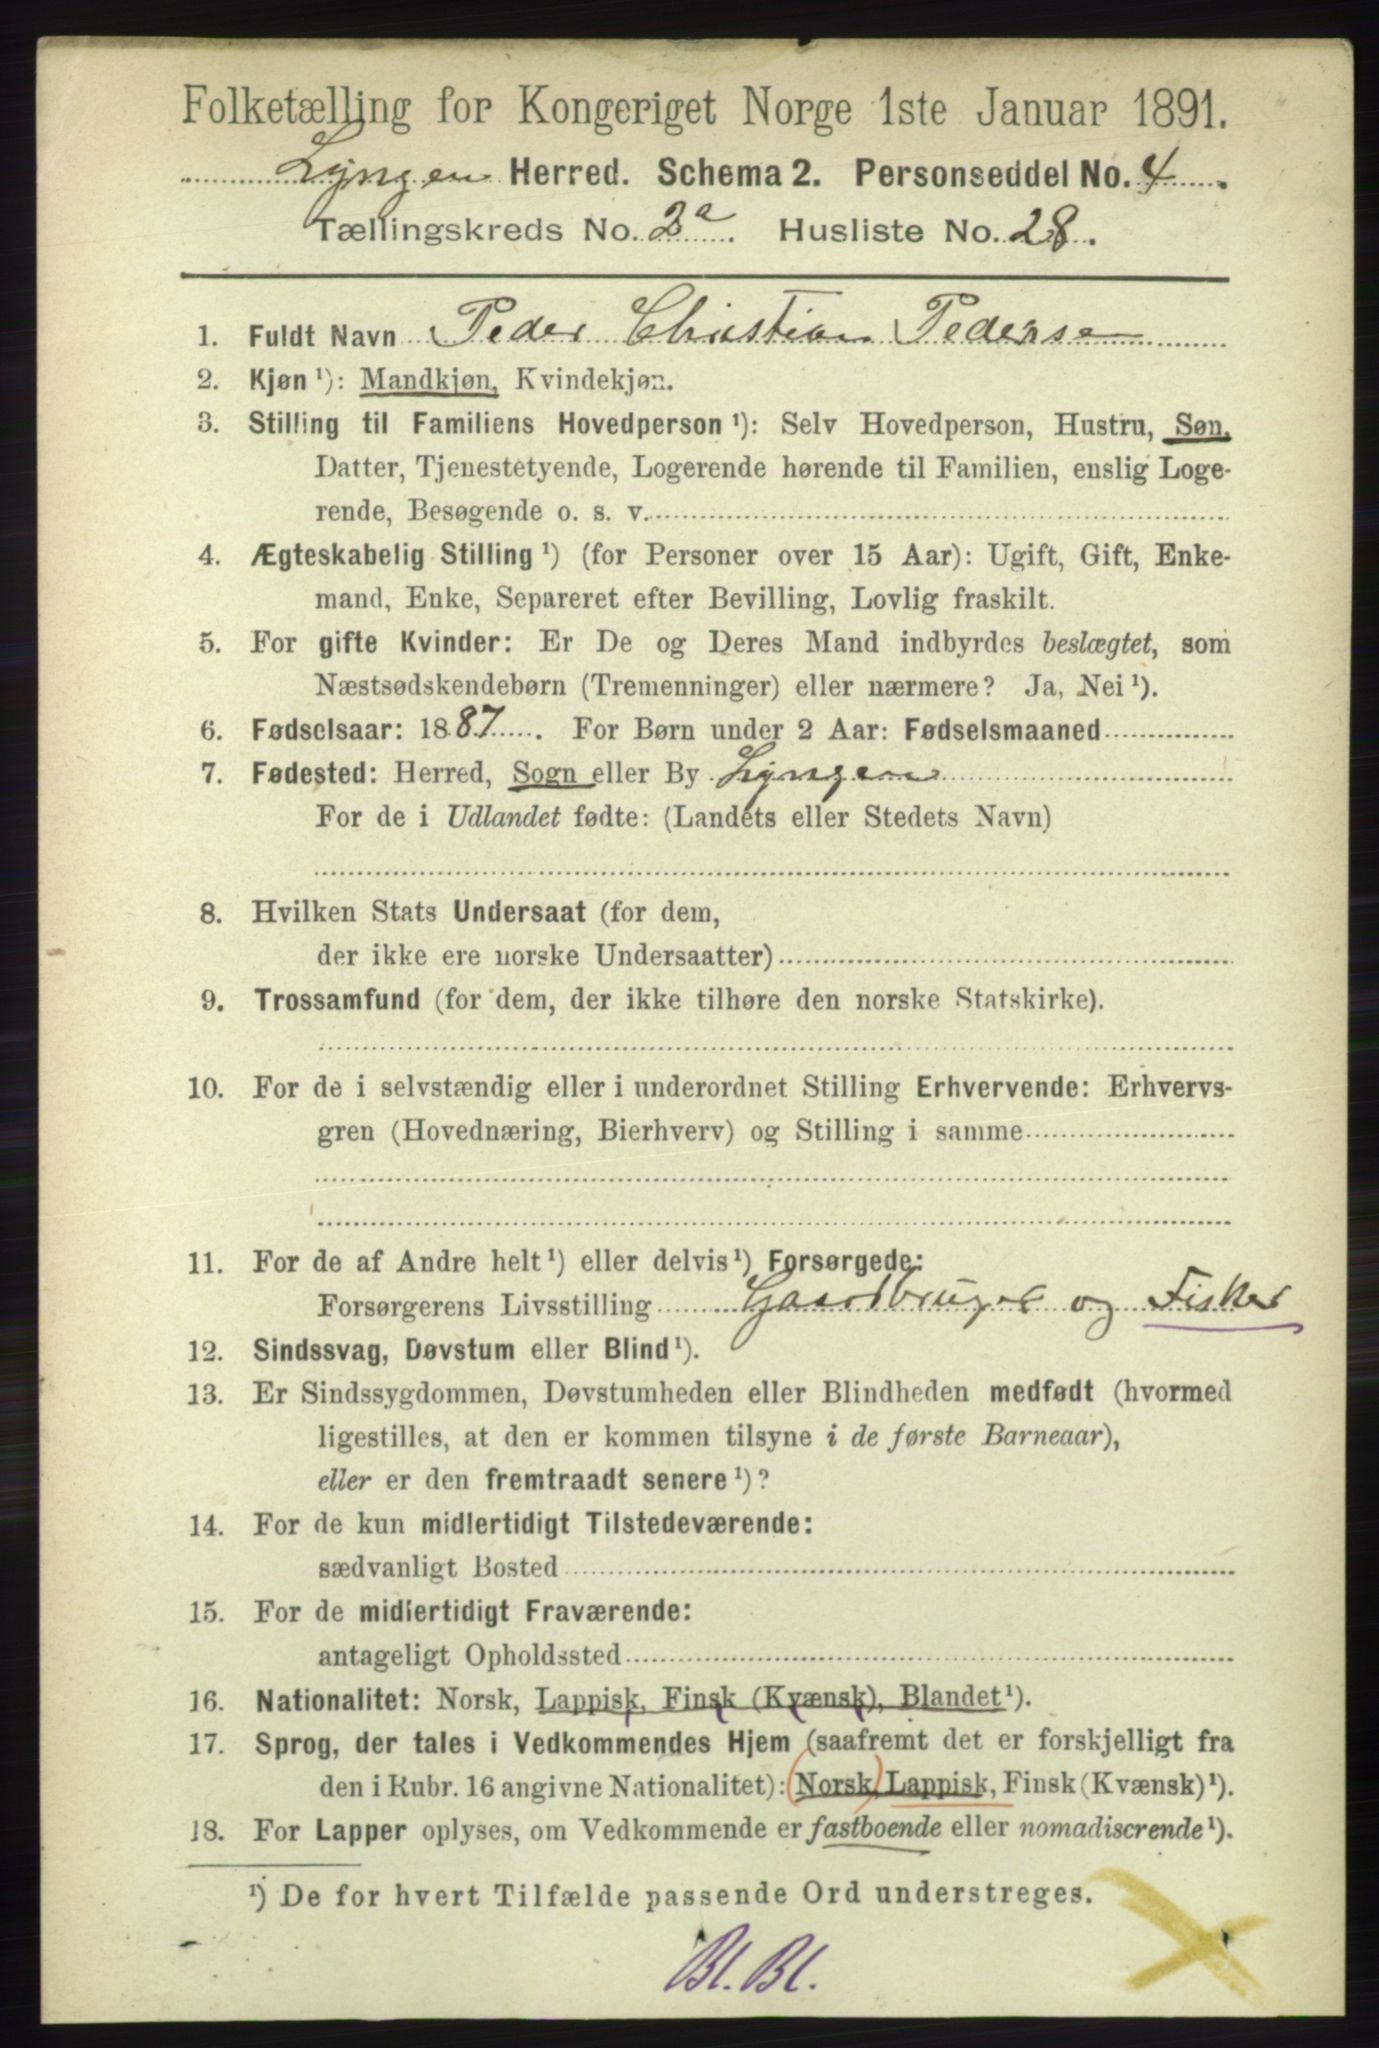 Folketælling for Kongeriget Norge 1ste Januar 1891.
Lyngen Herred. Schema 2. Personseddel No. 4.
Tællingskreds No. 2a. Husliste No. 28.
1. Fuldt Navn Peder Christian Pederse
2. Kjøn ¹): Mandkjøn, Kvindekjøn.
3. Stilling til Familiens Hovedperson ¹): Selv Hovedperson, Hustru, Søn,
Datter, Tjenestetyende, Logerende hørende til Familien, enslig Loge-
rende, Besøgende o. s. v.
4. Ægteskabelig Stilling ¹) (for Personer over 15 Aar): Ugift, Gift, Enke-
mand, Enke, Separeret efter Bevilling, Lovlig fraskilt.
5. For gifte Kvinder: Er De og Deres Mand indbyrdes beslægtet, som
Næstsødskendebørn (Tremenninger) eller nærmere? Ja, Nei ¹).
6. Fødselsaar: 1887. For Børn under 2 Aar: Fødselsmaaned
7. Fødested: Herred, Sogn eller By Lyngen
For de i Udlandet fødte: (Landets eller Stedets Navn)
8. Hvilken Stats Undersaat (for dem,
der ikke ere norske Undersaatter)
9. Trossamfund (for dem, der ikke tilhøre den norske Statskirke).
10. For de i selvstændig eller i underordnet Stilling Erhvervende: Erhvervs-
gren (Hovednæring, Bierhverv) og Stilling i samme
11. For de af Andre helt ¹) eller delvis ¹) Forsørgede:
Forsørgerens Livsstilling Gaardbruger og Fisker
12. Sindssvag, Døvstum eller Blind ¹).
13. Er Sindssygdommen, Døvstumheden eller Blindheden medfødt (hvormed
ligestilles, at den er kommen tilsyne i de første Barneaar),
eller er den fremtraadt senere ¹)?
14. For de kun midlertidigt Tilstedeværende:
sædvanligt Bosted
15. For de midlertidigt Fraværende:
antageligt Opholdssted
16. Nationalitet: Norsk, Lappisk, Finsk (Kvænsk), Blandet ¹).
17. Sprog, der tales i Vedkommendes Hjem (saafremt det er forskjelligt fra
den i Rubr. 16 angivne Nationalitet): (Norsk,) Lappisk, Finsk (Kvænsk) ¹).
18. For Lapper oplyses, om Vedkommende er fastboende eller nomadiserende ¹).
¹) De for hvert Tilfælde passende Ord understreges.
Bl. Bl.